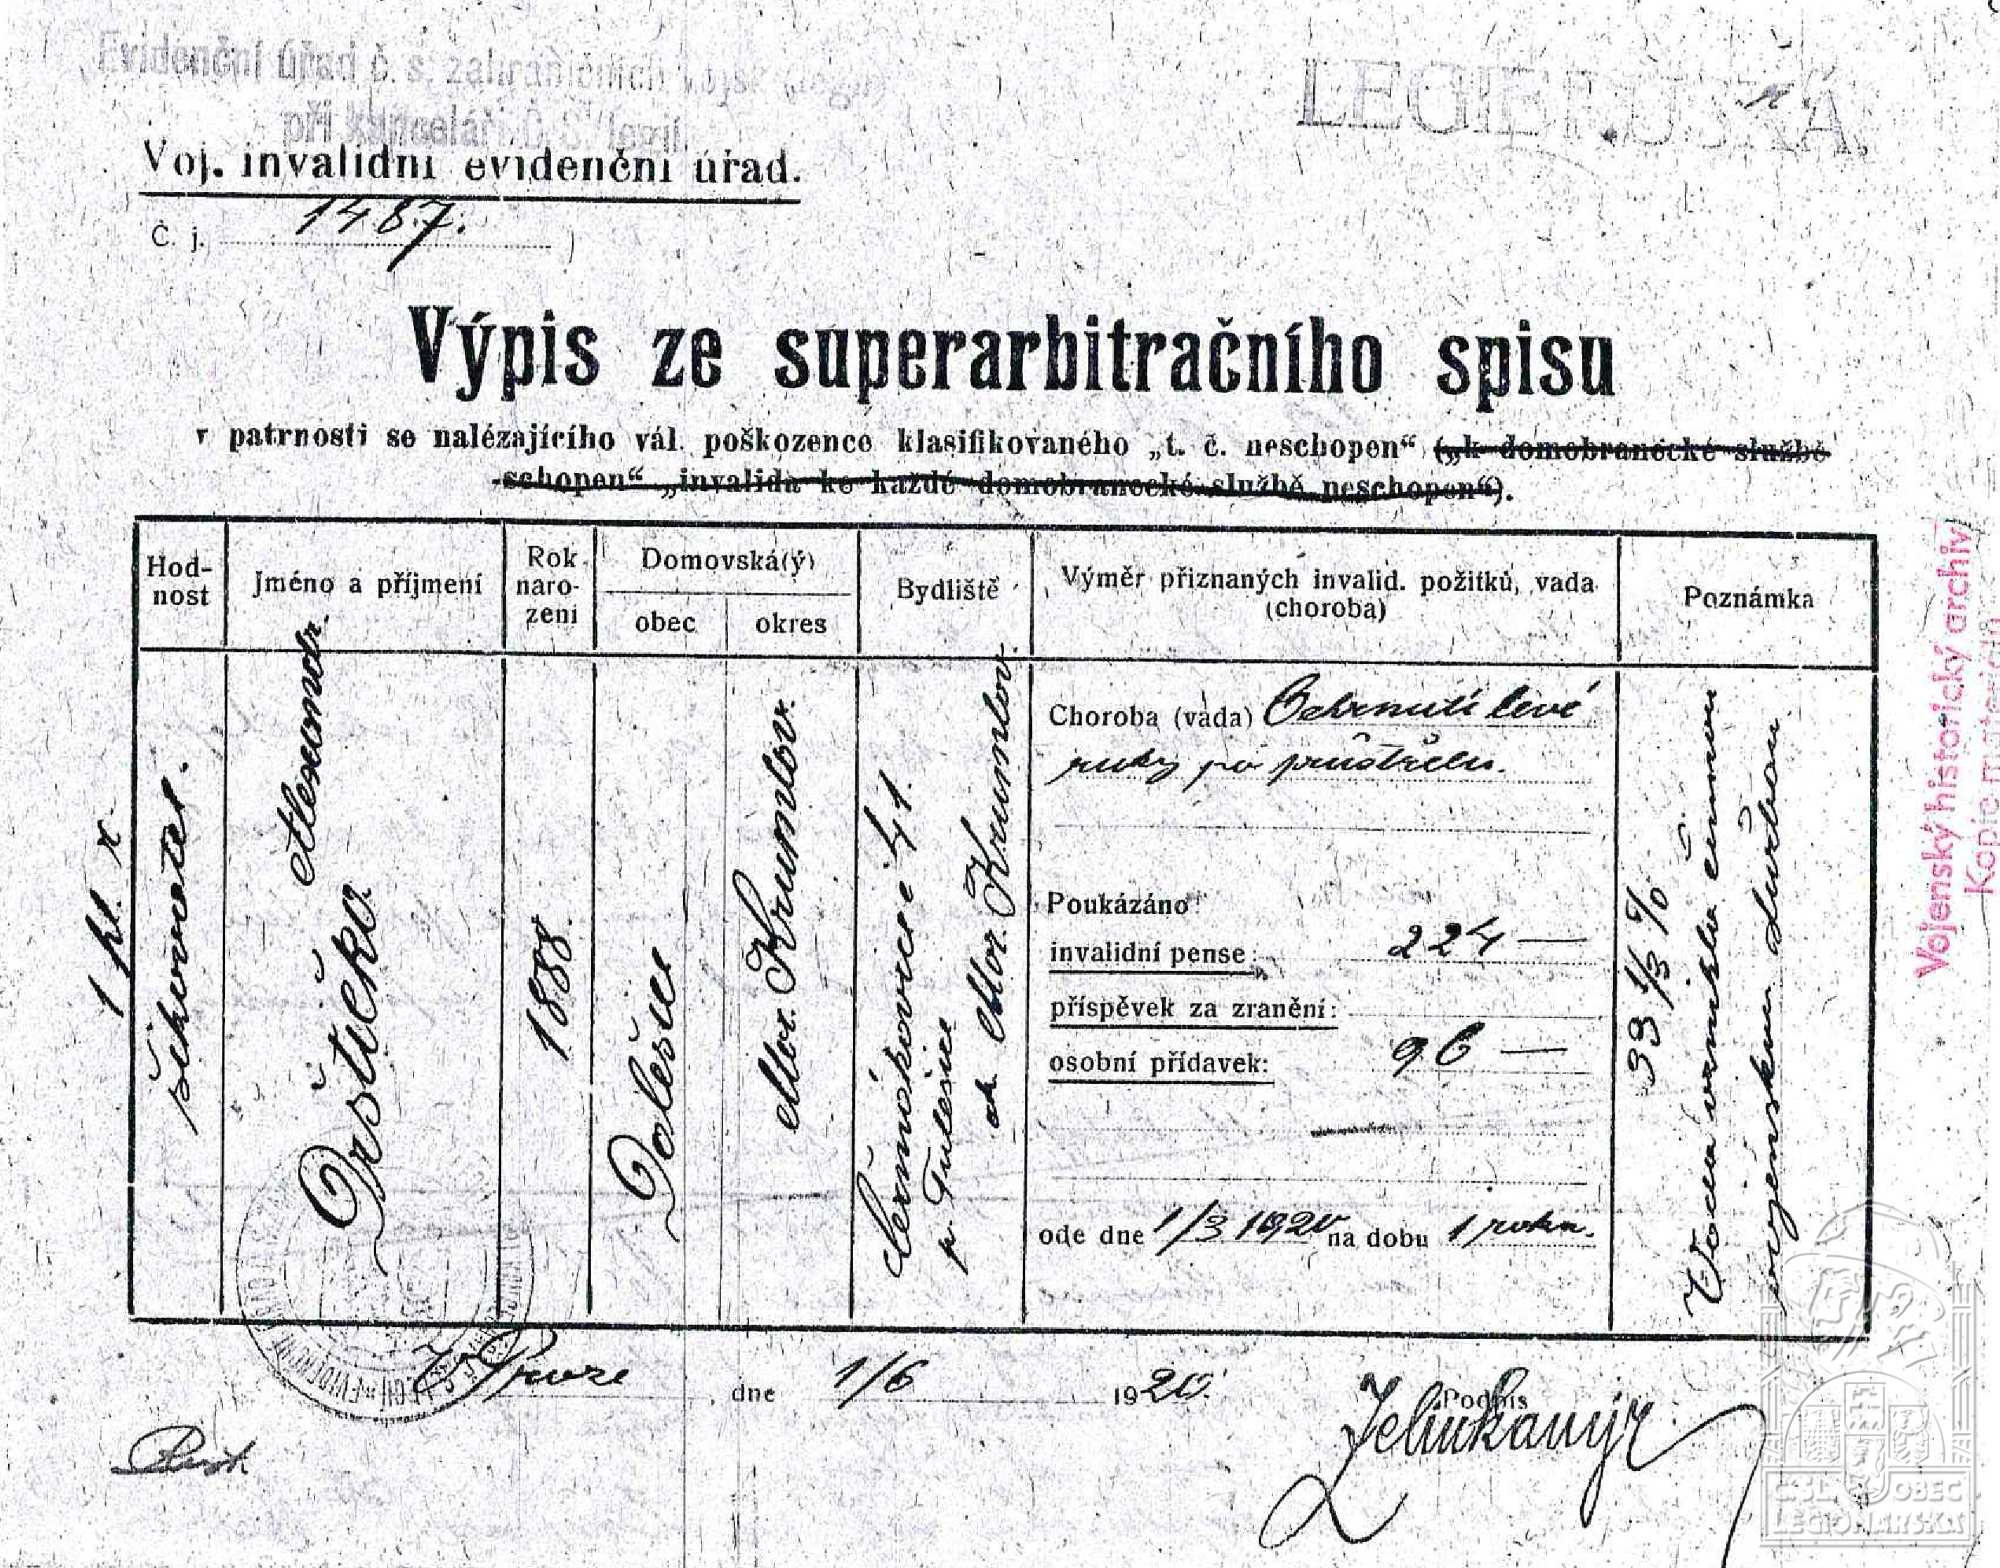 Evidenční úřad č. s. zahraničních vojsk (legií)
při kanceláři č. s. legií
LEGIE RUSKÁ.
Voj. invalidní evidenční úřad.
Č. j. 1487.
Výpis ze superarbitračního spisu
v patrnosti se nalézajícího vál. poškozence klasifikovaného „t. č. neschopen“ („k domobranecké službě
schopen“ „invalida ke každé domobranecké službě neschopen“).
Hod-
nost
Jméno a příjmení
Rok
naro-
zení
Domovská(ý)
obec
okres
Bydliště
Výměr přiznaných invalid. požitků, vada
(choroba)
Poznámka
šikovatel.
Orštička
1888.
Dolešice
Mor. Krumlov.
Čermákovice 41.
p. Tulešice
ok. Mor. Krumlov.
Choroba (vada) Ochrnutí levé
ruky po průstřelu.
Poukázáno:
invalidní pense: 224 —
příspěvek za zranění:
osobní přídavek: 96 —
ode dne 1/3 1920 na dobu 1 roku.
33 1/3 %
Vada vznikla činnou
vojenskou službou
V Praze, dne 1/6 1920.
Podpis
Vojenský historický archiv
Kopie materiálu
ČSL. OBEC
LEGIONÁŘSKÁ